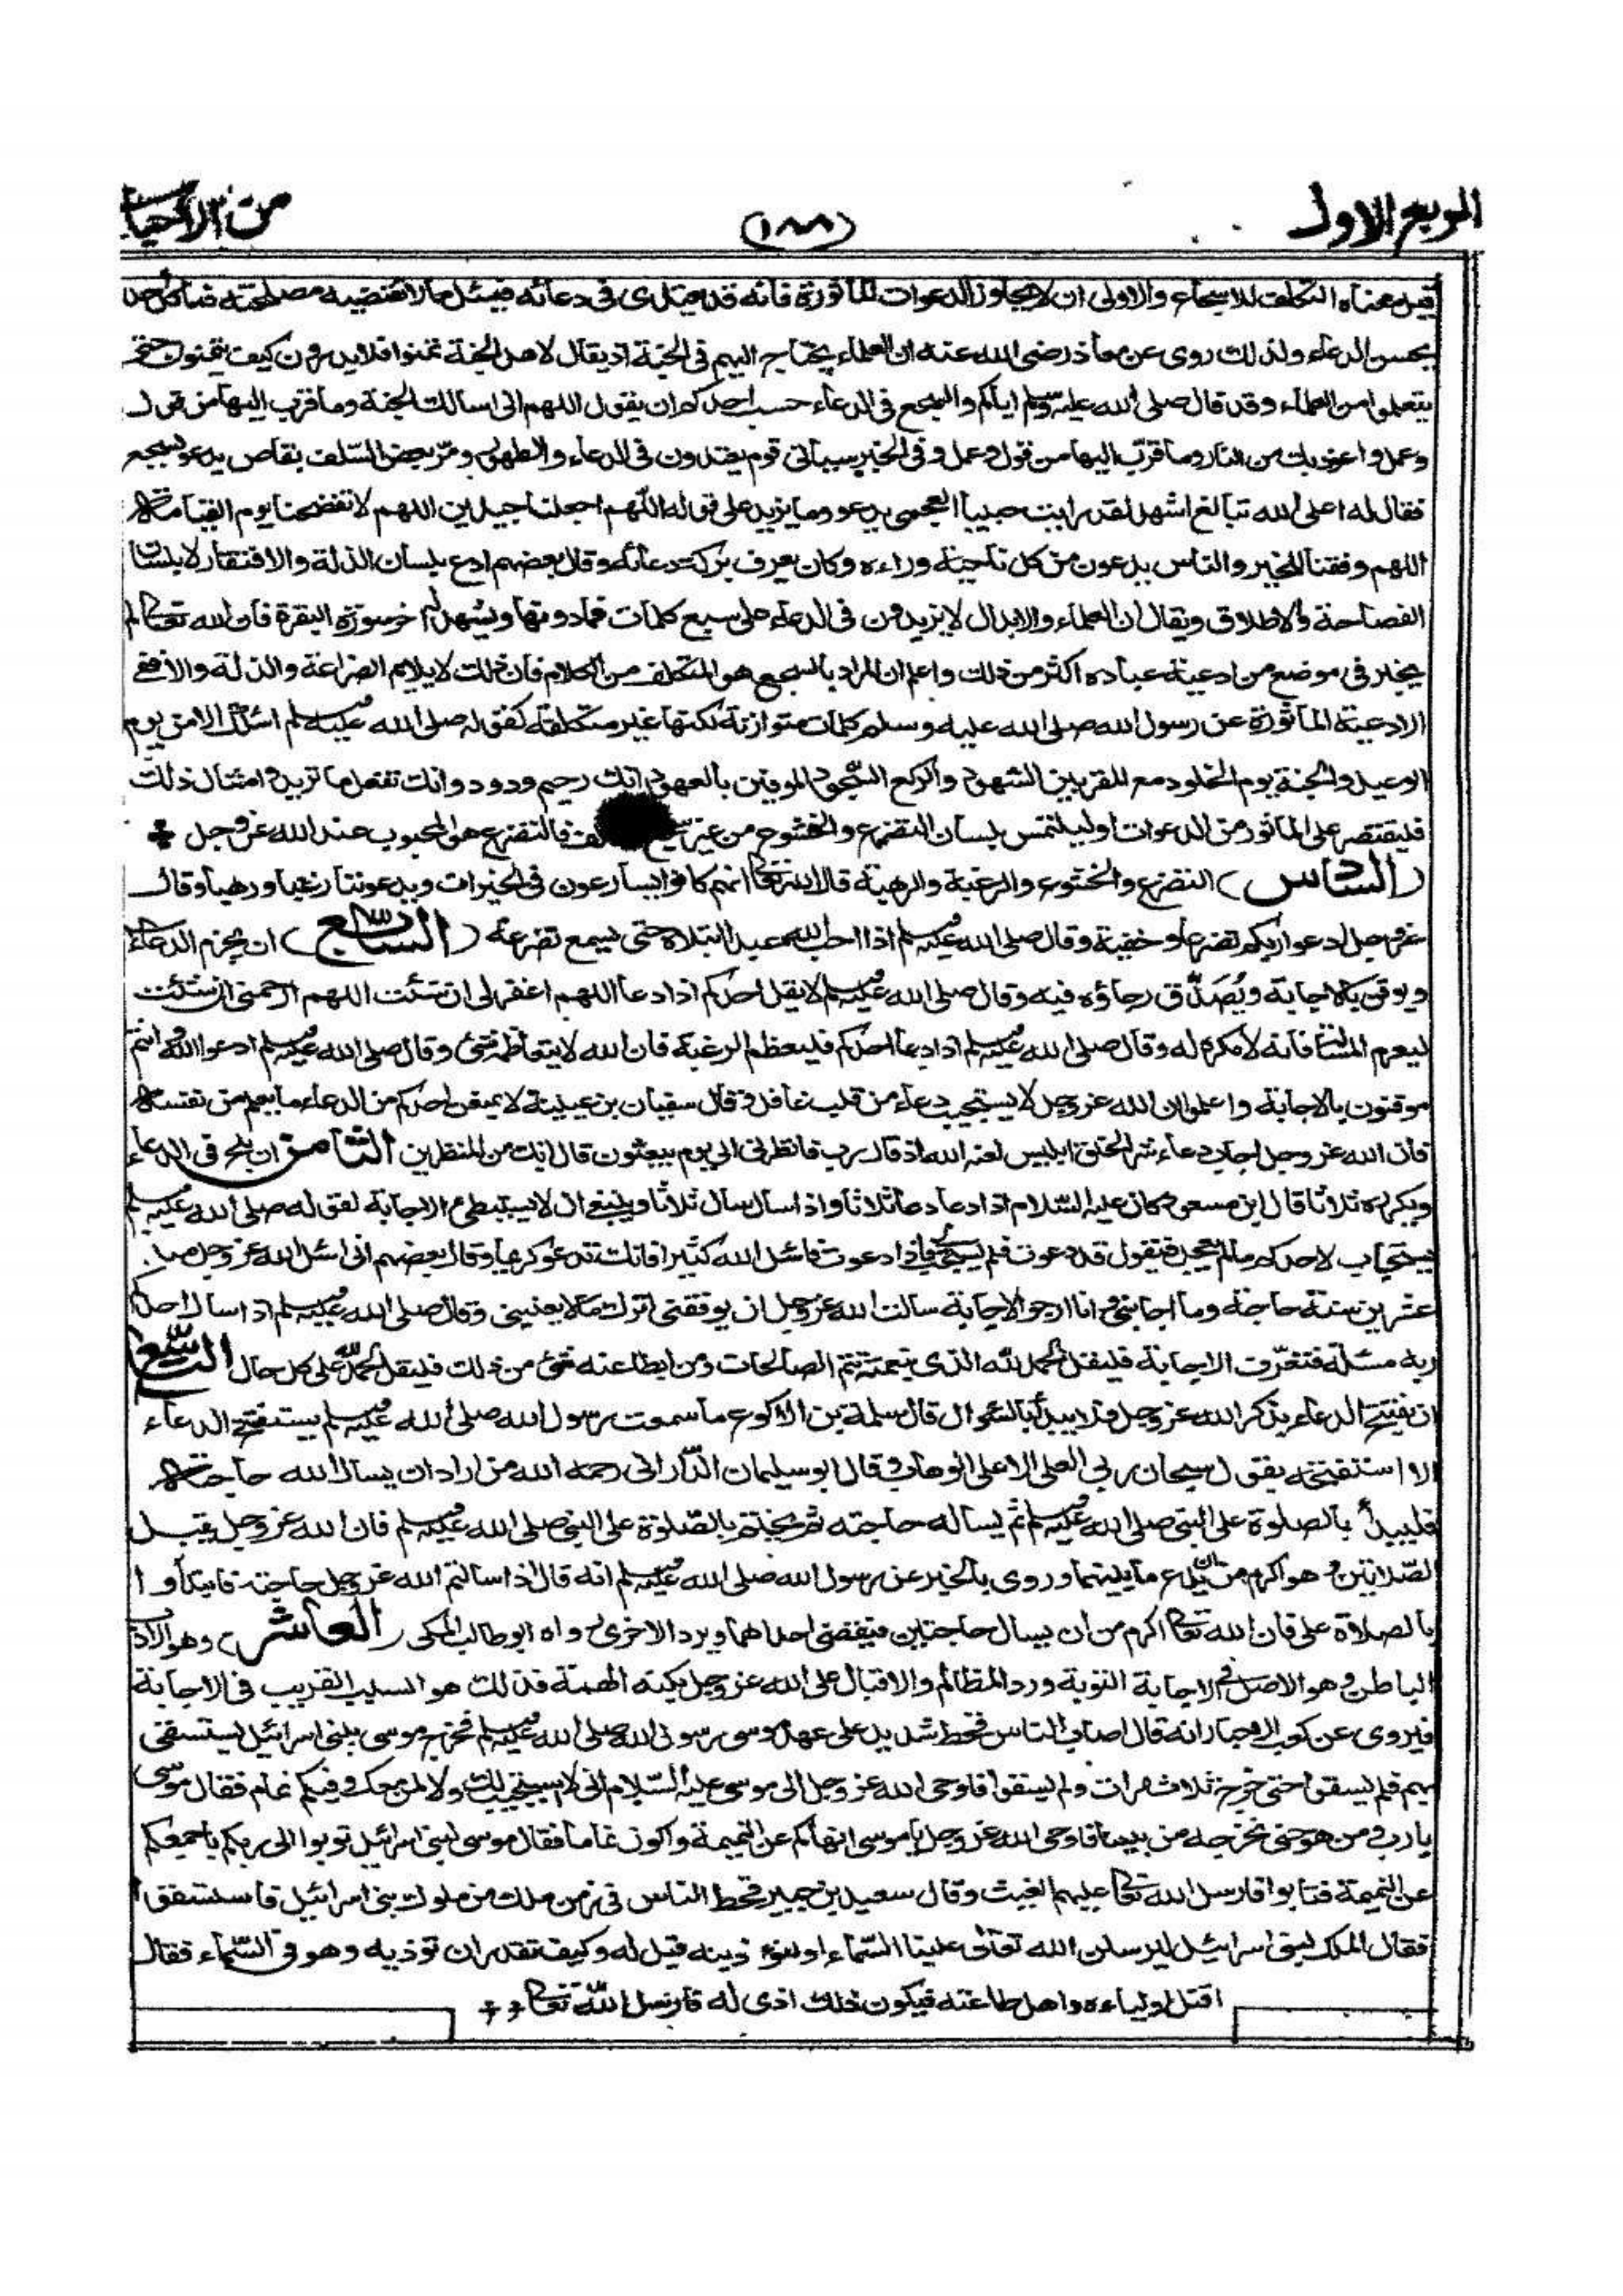 الربع الاول
(١٨٨)
من الأحياء
قيل معناه التكلف للاسجاع والاولى ان لا يجاوز الدعوات المأثورة فانه قد يعتدى فى دعائه فيسئل مالا تقتضيه مصلحته فما كل احد
يحسن الدعاء ولذلك روى عن معاذ رضى الله عنه ان العلماء يحتاج اليهم فى الجنة اذ يقال لاهل الجنة تمنوا فلا يدرون كيف يتمنون حتى
يتعلموا من العلماء وقد قال صلى الله عليه وسلم اياكم والسجع فى الدعاء حسب احدكم ان يقول اللهم انى اسالك الجنة وما قرب اليها من قول
وعمل واعوذ بك من النار وما قرّب اليها من قول وعمل وفى الخبر سيأتى قوم يعتدون فى الدعاء والطهور ومرّ بعض السّلف بقاص يدعو بسجع
فقال له اعلى الله تبالغ اشهد لقد رايت حبيبا العجمى يدعو وما يزيد على قوله اللّهم اجعلنا جيدين اللهم لا تفضحنا يوم القيامة
اللهم وفقنا للخير والناس يدعون من كل ناحية وراءه وكان يعرف بركت دعائه وقال بعضهم ادع بلسان الذلة والافتقار لا بلسان
الفصاحة والاطلاق ويقال ان العلماء والابدال لا يزيدون فى الدعاء على سبع كلمات فمادونها ويشهد له اخر سورة البقرة فان الله تعالى لم
يخبر فى موضع من ادعية عباده اكثر من ذلك واعلم ان المراد بالسجع هو المتكلف من الكلام فان ذلك لا يلايم الضراعة والذلة والا ففى
الادعية المأثورة عن رسول الله صلى الله عليه وسلم كلمات متوازنة لكنها غير متكلفة كقوله صلى الله عليه وسلم اسئلك الامن يوم
الوعيد والجنة يوم الخلود مع المقربين الشهود والركع السّجود الموفين بالعهود انك رحيم ودود وانت تفعل ما تريد وامثال ذلك
فليقتصر على الماثور من الدعوات او ليلتمس بلسان التضرع والخشوع من غير سجع فالتضرع هو المحبوب عند الله عز وجل
(السّادس) التضرع والخشوع والرغبة والرهبة قال الله تعالى انهم كانوا يسارعون فى الخيرات ويدعوننا رغبا ورهبا وقال
عز وجل ادعوا ربكم تضرعا وخفية وقال صلى الله عليه وسلم اذا احب الله عبدا ابتلاه حتى يسمع تضرعه (السّابع) ان يجزم الدعاء
ويوقن بالاجابة ويُصَدّق رجاؤه فيه وقال صلى الله عليه وسلم لا يقل احدكم اذا دعا اللهم اغفر لى ان شئت اللهم ارحمنى ان شئت
ليعزم المسئلة فانه لا مكره له وقال صلى الله عليه وسلم اذا دعا احدكم فليعظم الرغبة فان الله لا يتعاظمه شئ وقال صلى الله عليه وسلم ادعوا الله وانتم
موقنون بالاجابة واعلموا ان الله عز وجل لا يستجيب دعاء من قلب غافل وقال سفيان بن عيينة لا يمنعن احدكم من الدعاء ما يعلم من نفسه
فان الله عز وجل اجاب دعاء شر الخلق ابليس لعنه الله اذ قال رب فانظرنى الى يوم يبعثون قال انك من المنظرين الثامن ان يلح فى الدعاء
ويكرره ثلاثا قال ابن مسعود كان عليه السّلام اذا دعا دعا ثلاثا واذا سال سال ثلاثا وينبغى ان لا يستبطئ الاجابة لقوله صلى الله عليه وسلم
يستجاب لاحدكم مالم يعجل فيقول قد دعوت فلم يستجب لى فاذا دعوت فاسئل الله كثيرا فانك تدعو كريما وقال بعضهم انى اسئل الله عز وجل منذ
عشرين سنة حاجة وما اجابنى وانا ارجو الاجابة سالت الله عز وجل ان يوفقنى لترك مالا يعنينى وقال صلى الله عليه وسلم اذا سال احدكم
ربه مسئلة فتعرّف الاجابة فليقل الحمد لله الذى بنعمته تتم الصالحات ومن ابطا عنه شئ من ذلك فليقل الحمد لله على كل حال التّاسع
ان يفتتح الدعاء بذكر الله عز وجل فلا يبدأ بالسّؤال قال سلمة بن الاكوع ما سمعت رسول الله صلى الله عليه وسلم يستفتح الدعاء
الا استفتحه بقول سبحان ربى العلى الاعلى الوهاب وقال ابو سليمان الدّارانى رحمه الله من اراد ان يسال الله حاجة
فليبدأ بالصلوة على النبى صلى الله عليه وسلم ثم يساله حاجته ثم يختم بالصّلوة على النبى صلى الله عليه وسلم فان الله عز وجل يقبل
الصّلاتين وهو اكرم من ان يدع ما بينهما وروى بالخبر عن رسول الله صلى الله عليه وسلم انه قال اذا سالتم الله عز وجل حاجة فابتدأوا
بالصلاة على فان الله تعالى اكرم من ان يسال حاجتين فيقضى احداهما ويرد الاخرى رواه ابو طالب المكى (العاشر) وهو الادب
الباطن وهو الاصل فى الاجابة التوبة ورد المظالم والاقبال على الله عز وجل بكنه الهمة فذلك هو السبب القريب فى الاجابة
فيروى عن كعب الاحبار انه قال اصاب الناس قحط شديد على عهد موسى رسول الله صلى الله عليه وسلم فخرج موسى ببنى اسرائيل يستسقى
بهم فلم يسقوا حتى خرج ثلاث مرات ولم يسقوا فاوحى الله عز وجل الى موسى عليه السّلام انى لا استجيب لك ولا لمن معك وفيكم نمام فقال موسى
يا رب من هو حتى نخرجه من بيننا فاوحى الله عز وجل يا موسى انهاكم عن النميمة واكون نماما فقال موسى لبنى اسرائيل توبوا الى ربكم باجمعكم
عن النميمة فتابوا فارسل الله تعالى عليهم الغيث وقال سعيد بن جبير قحط الناس فى زمن ملك من ملوك بنى اسرائيل فاستسقوا
فقال الملك لبنى اسرائيل ليرسلن الله تعالى علينا السّماء او لنؤذينه قيل له وكيف تقدر ان توذيه وهو فى السّماء فقال
اقتل اولياءه واهل طاعته فيكون ذلك اذى له فارسل الله تعالى